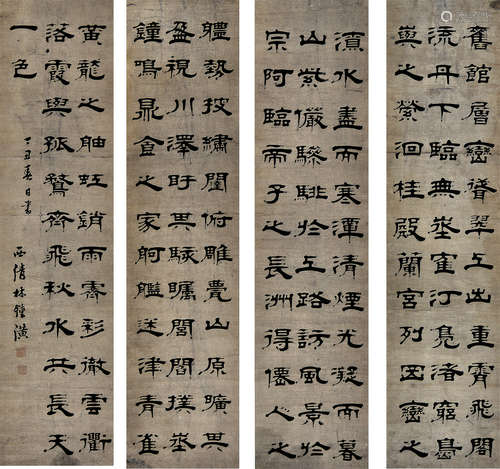 舊館層巒聳翠上出重霄飛閣
流丹下臨無埊寉汀鳧渚窮島
嶼之縈洄桂殿蘭宮列岡巒之
潦水盡而寒潭清煙光凝而暮
山紫儼驂騑於上路訪風景於
宗阿臨帝子之長洲得僊人之
體勢披繡闥俯雕甍山原曠其
盈視川澤盱其駭矚閭閻撲埊
鐘鳴鼎食之家舸艦迷津青雀
黃龍之舳虹銷雨霽彩徹雲衢
落霞與孤鶩齊飛秋水共長天
一色
丁丑春日書
西清林鍾潢